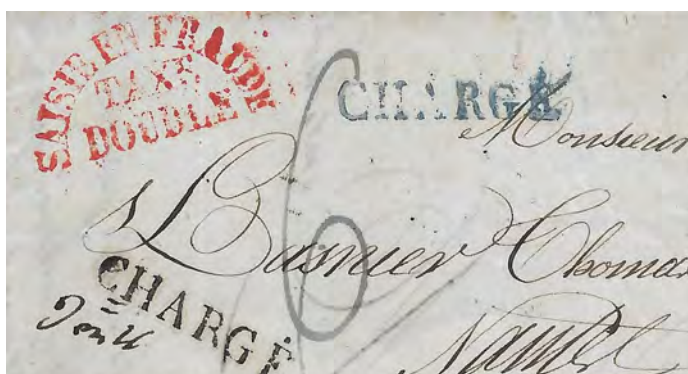 SAISIE EN FRAUDE
TAXE
DOUBLE
CHARGÉ
Monsieur
Busnier Thomas
CHARGÉ
Nantes
6